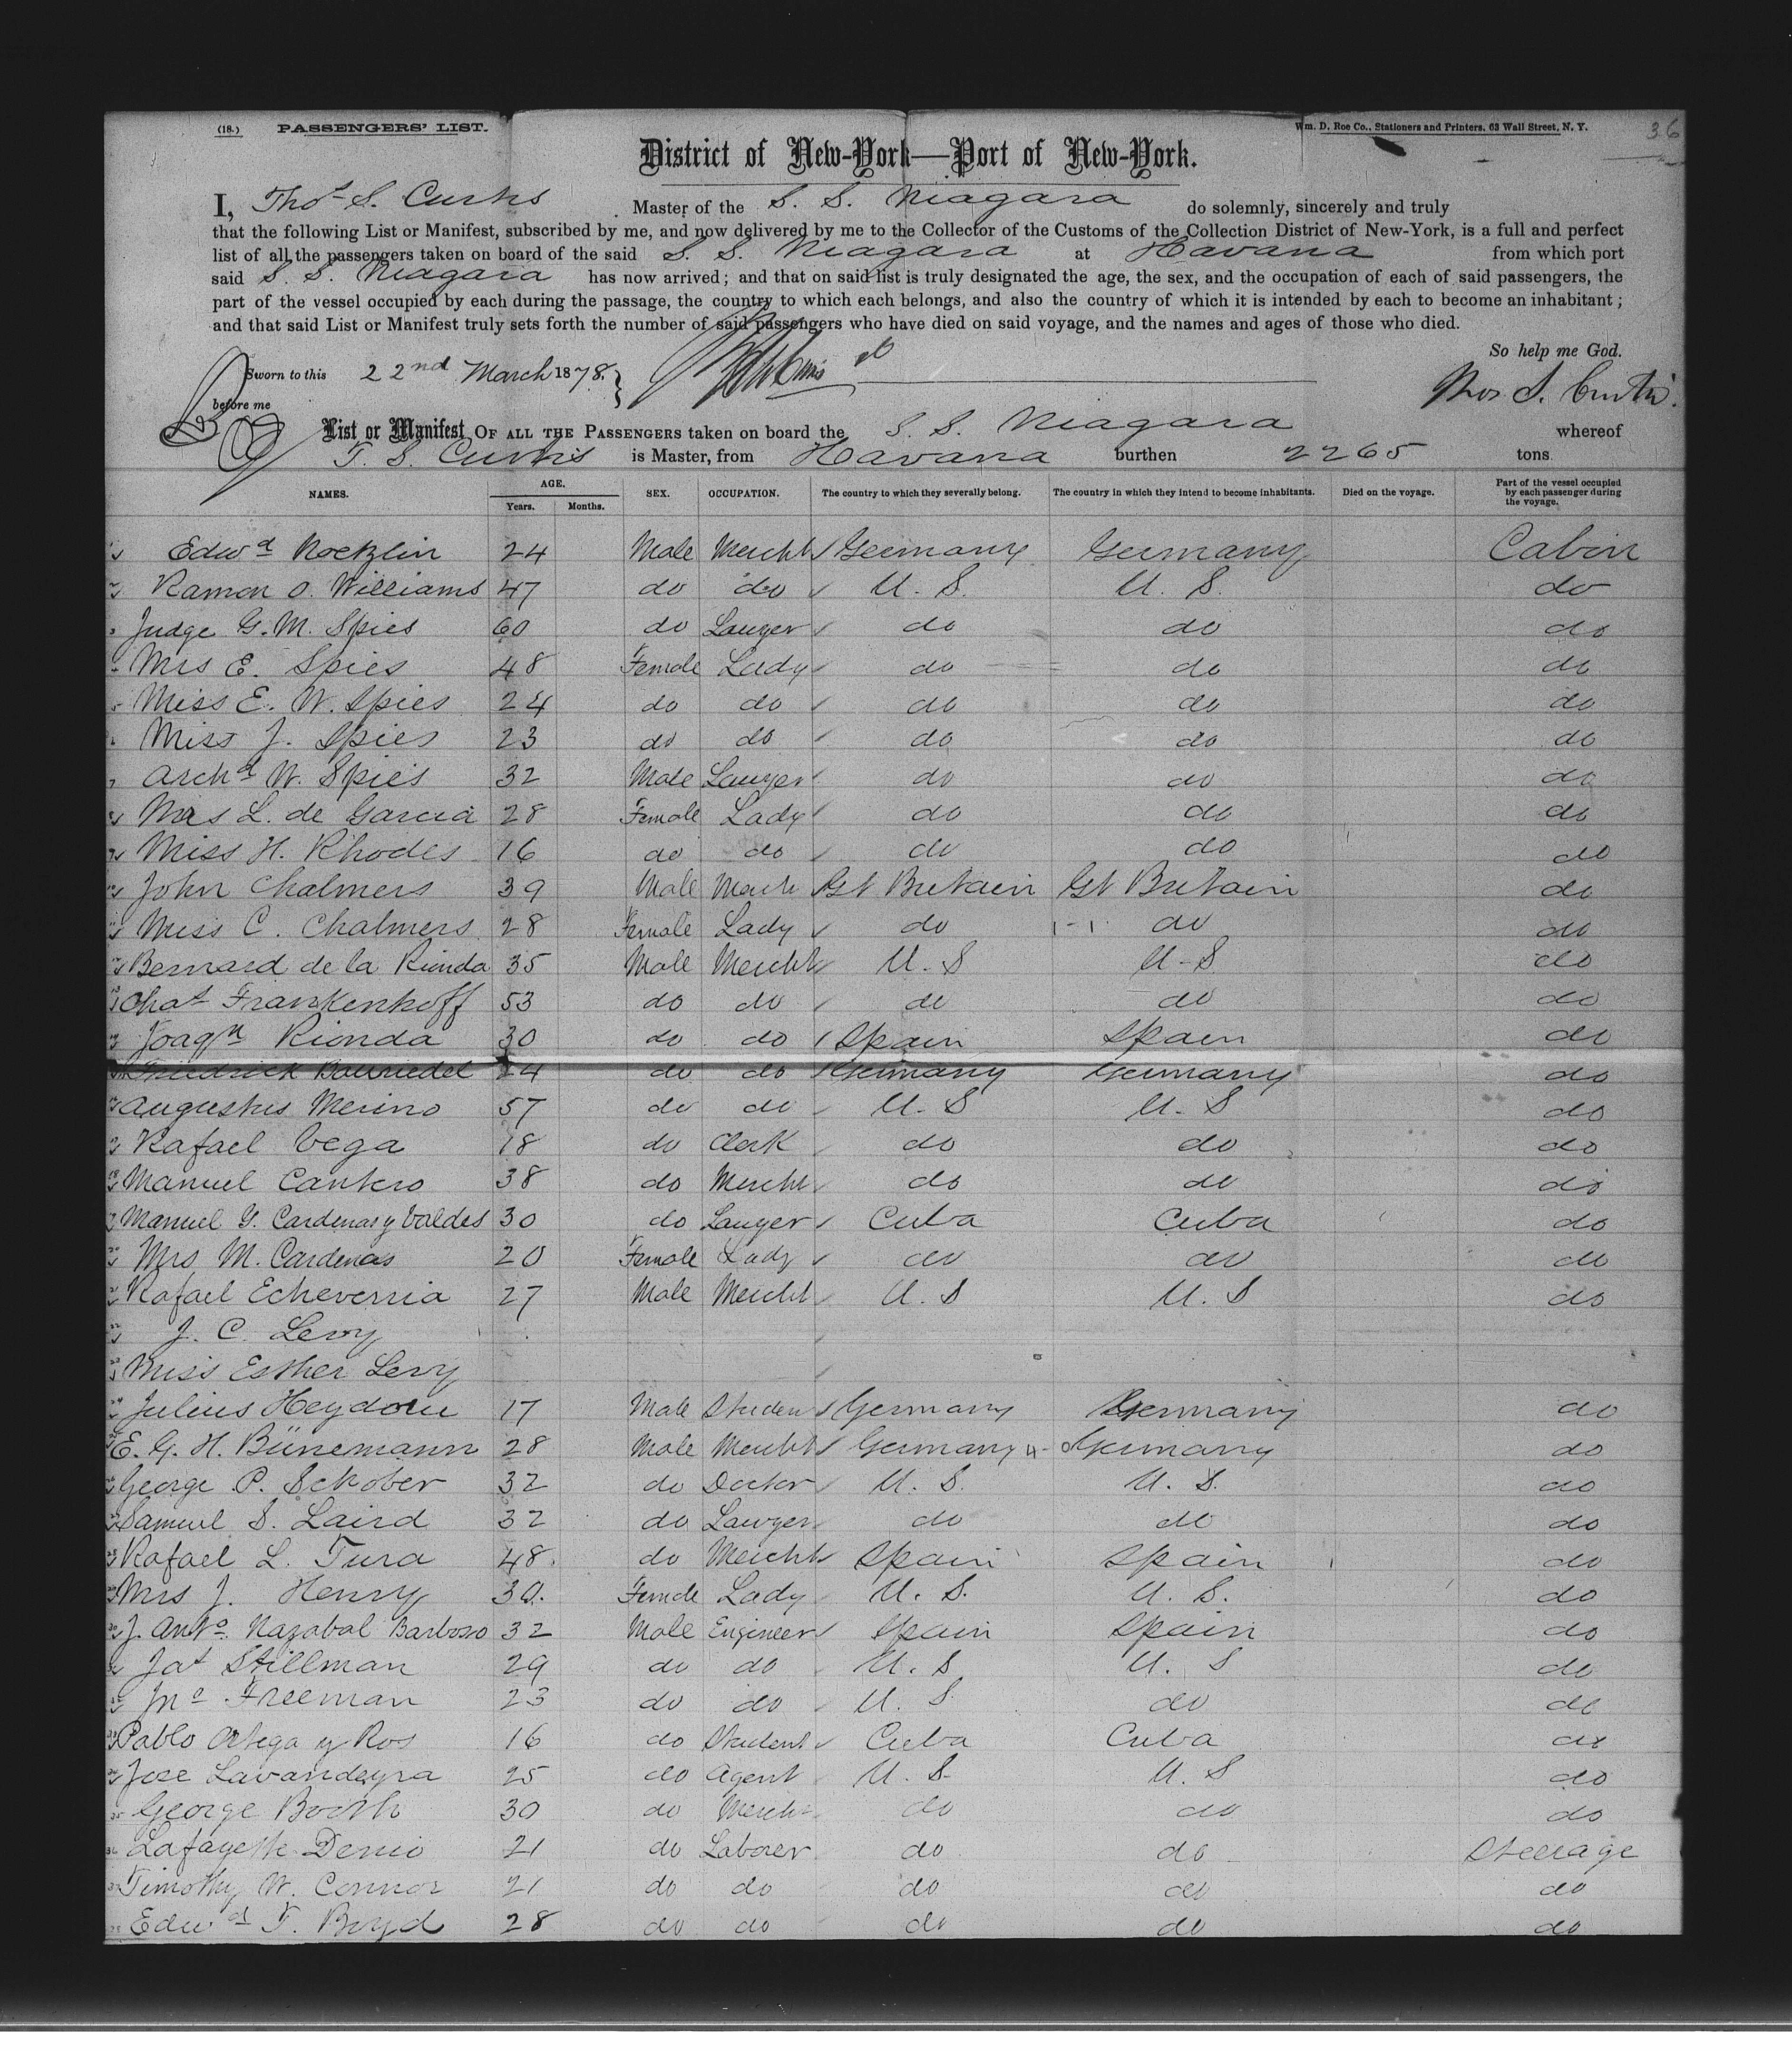 (18.) PASSENGERS' LIST. Wm. D. Roe Co., Stationers and Printers, 63 Wall Street, N. Y. 36
District of New-York—Port of New-York.
I, Thos S. Curtis Master of the S. S. Niagara do solemnly, sincerely and truly
that the following List or Manifest, subscribed by me, and now delivered by me to the Collector of the Customs of the Collection District of New-York, is a full and perfect
list of all the passengers taken on board of the said S. S. Niagara at Havana from which port
said S. S. Niagara has now arrived; and that on said list is truly designated the age, the sex, and the occupation of each of said passengers, the
part of the vessel occupied by each during the passage, the country to which each belongs, and also the country of which it is intended by each to become an inhabitant;
and that said List or Manifest truly sets forth the number of said passengers who have died on said voyage, and the names and ages of those who died.
So help me God.
Sworn to this 22nd March 1878.
before me Thos S. Curtis.
List or Manifest OF ALL THE PASSENGERS taken on board the S. S. Niagara whereof
T. S. Curtis is Master, from Havana burthen 2265 tons.
NAMES. AGE. Years. Months. SEX. OCCUPATION. The country to which they severally belong. The country in which they intend to become inhabitants. Died on the voyage. Part of the vessel occupied by each passenger during the voyage.
1 Edwd 24 Male Mercht Germany Germany Cabin
2 Ramon O. Williams 47 do do U. S. U. S. do
3 Judge G. M. Spies 60 do Lawyer do do do
4 Mrs E. Spies 48 Female Lady do do do
5 Miss E. W. Spies 24 do do do do do
6 Miss J. Spies 23 do do do do do
7 Archd W. Spies 32 Male Lawyer do do do
8 Mrs L. de Garcia 28 Female Lady do do do
9 Miss H. Rhodes 16 do do do do do
10 John Chalmers 39 Male Merch Gt Britain Gt Britain do
11 Miss C. Chalmers 28 Female Lady do do do
12 Bernard de la Rionda 35 Male Mercht U. S U. S do
13 Chas Frankenhoff 53 do do do do do
14 Joaqn Rionda 30 do do Spain Spain do
15 Friedrick 24 do do Germany Germany do
16 Augustus Merino 57 do do U. S U. S do
17 Rafael Vega 18 do Clerk do do do
18 Manuel Cantero 38 do Mercht do do do
19 Manuel G. Cardenas y Valdes 30 do Lawyer Cuba Cuba do
20 Mrs M. Cardenas 20 Female Lady do do do
21 Rafael Echeverria 27 Male Mercht U. S U. S do
22 J. C. Levy
23 Miss Esther Levy
24 Julius Heydorn 17 Male Studen Germany Germany do
25 E. G. H. Bünemann 28 Male Mercht Germany Germany do
26 George P. Schober 32 do Doctor U. S. U. S. do
27 Samuel S. Laird 32 do Lawyer do do do
28 Rafael L. Tura 48. do Mercht Spain Spain do
29 Mrs J. Henry 30. Female Lady U. S. U. S. do
30 J. Anto. Nazabal Barboso 32 Male Engineer Spain Spain do
31 Jas Stillman 29 do do U. S U. S do
32 Jno Freeman 23 do do U. S. do do
33 Pablo Ortega y Ros 16 do Student Cuba Cuba do
34 Jose Lavandeyra 25 do Agent U. S. U. S do
35 George Booth 30 do Mercht do do do
36 Lafayette Denio 21 do Laborer do do Steerage
37 Timothy W. Connor 21 do do do do do
38 Edwd F. Boyd 28 do do do do do